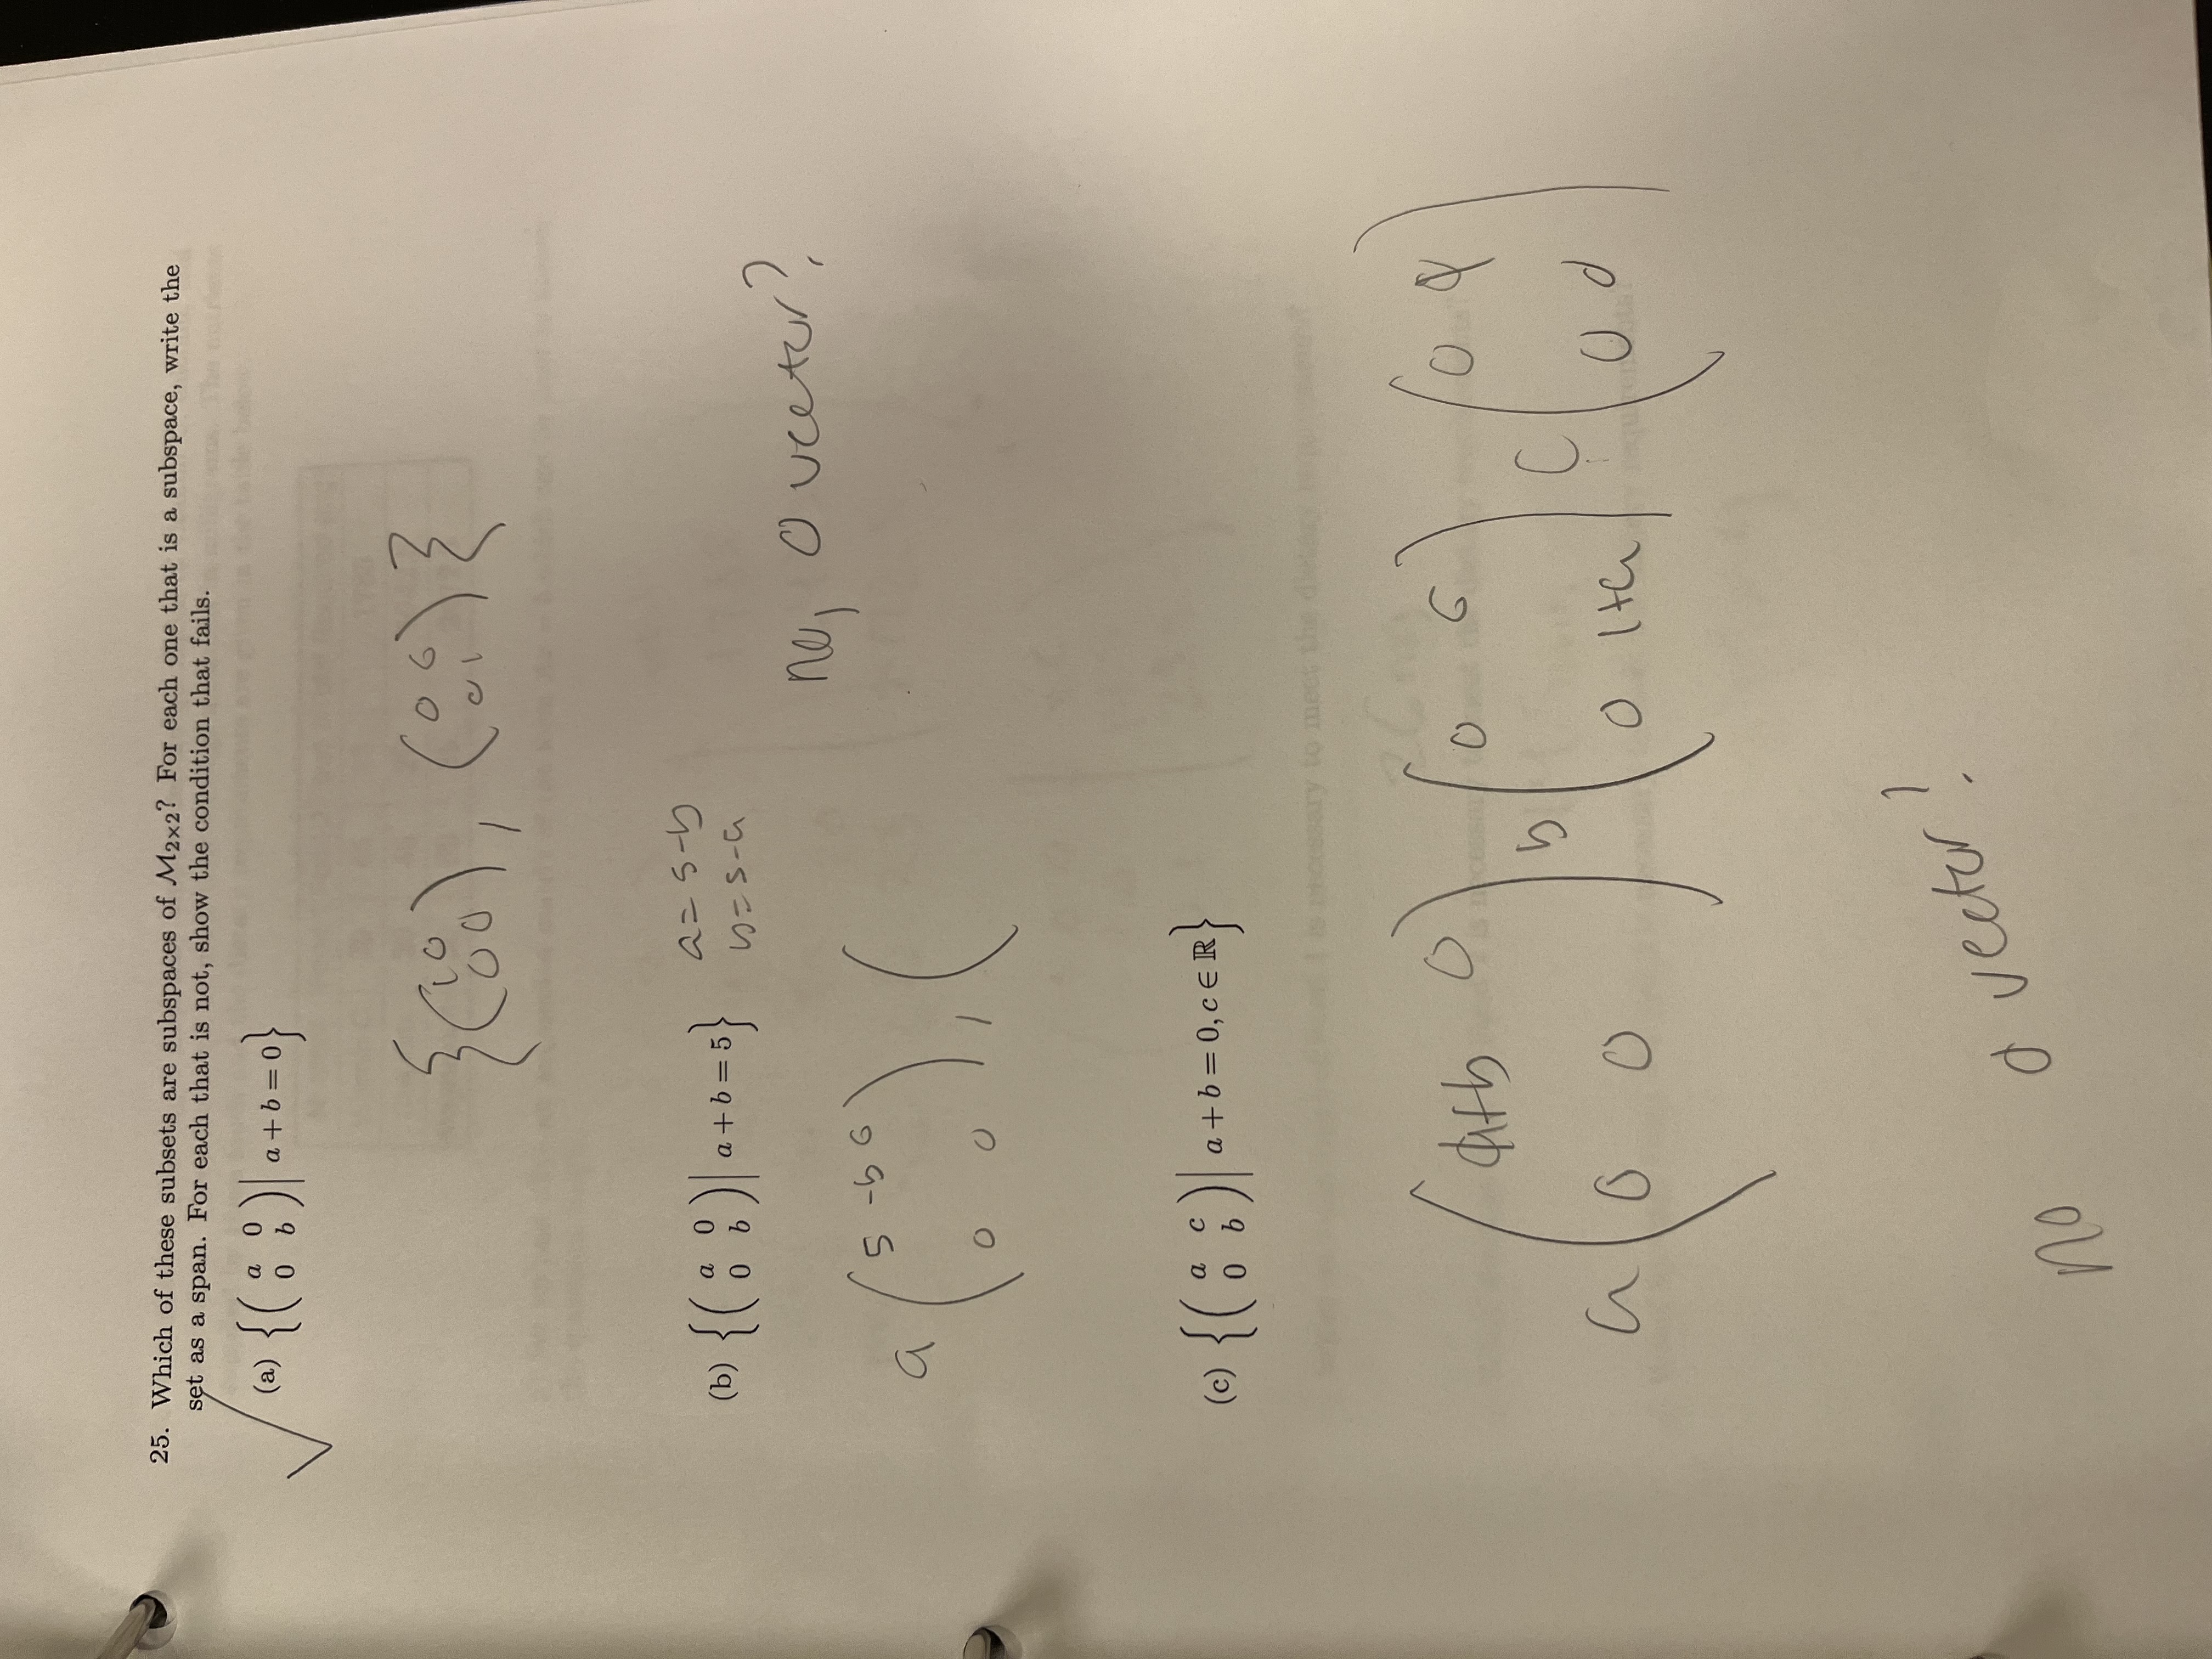 25. Which of these subsets are subspaces of M2×2? For each one that is a subspace, write the
set as a span. For each that is not, show the condition that fails.
(a) { ( a 0 ; 0 b ) | a + b = 0 }
{ ( 1 0 ; 0 0 ) , ( 0 0 ; 0 1 ) }
(b) { ( a 0 ; 0 b ) | a + b = 5 }
a = 5 - b
b = 5 - a
no, 0 vector?
a ( 5 -b 0 ; 0 0 ) , (
(c) { ( a c ; 0 b ) | a + b = 0, c ∈ ℝ }
a ( +b 0 ; 0 0 ) b ( 0 0 ; 0 1+a ) c ( 0 ; 0 0 )
no 0 vector?